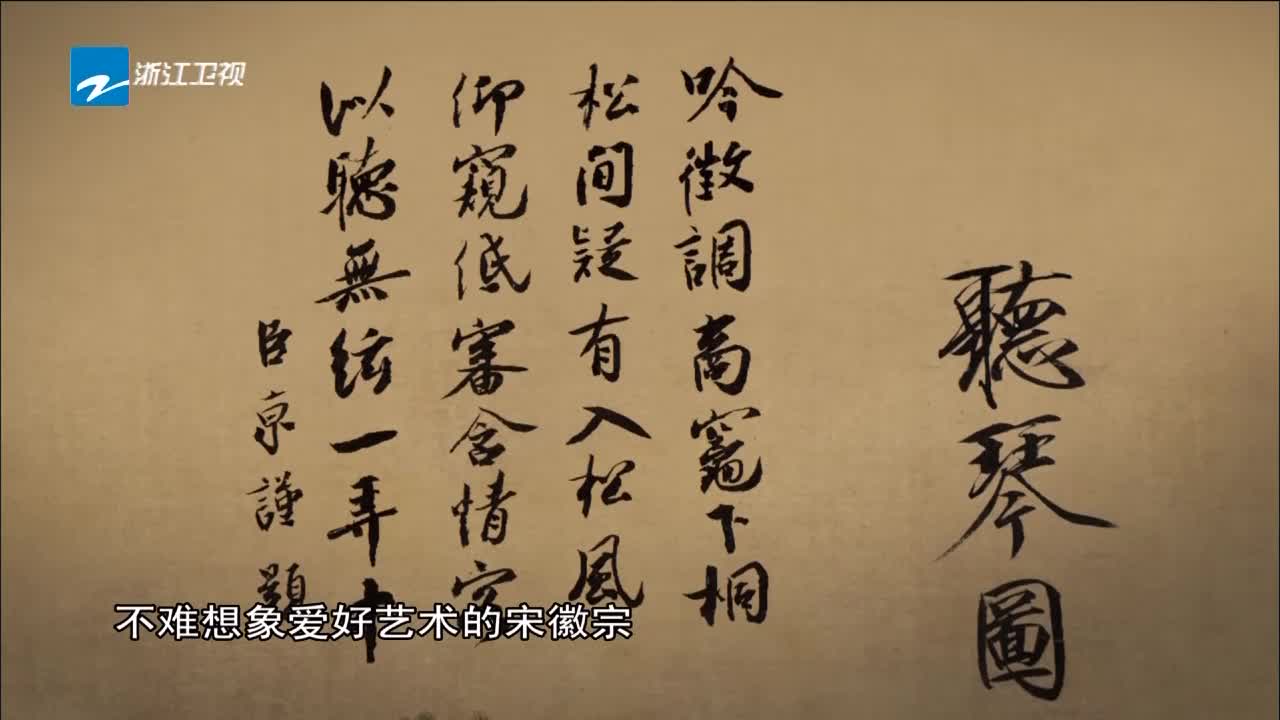 浙江卫视
聽琴圖
吟徵調商竈下桐
松間疑有入松風
仰窺低審含情客
以聽無絃一弄中
臣京謹題
不难想象爱好艺术的宋徽宗